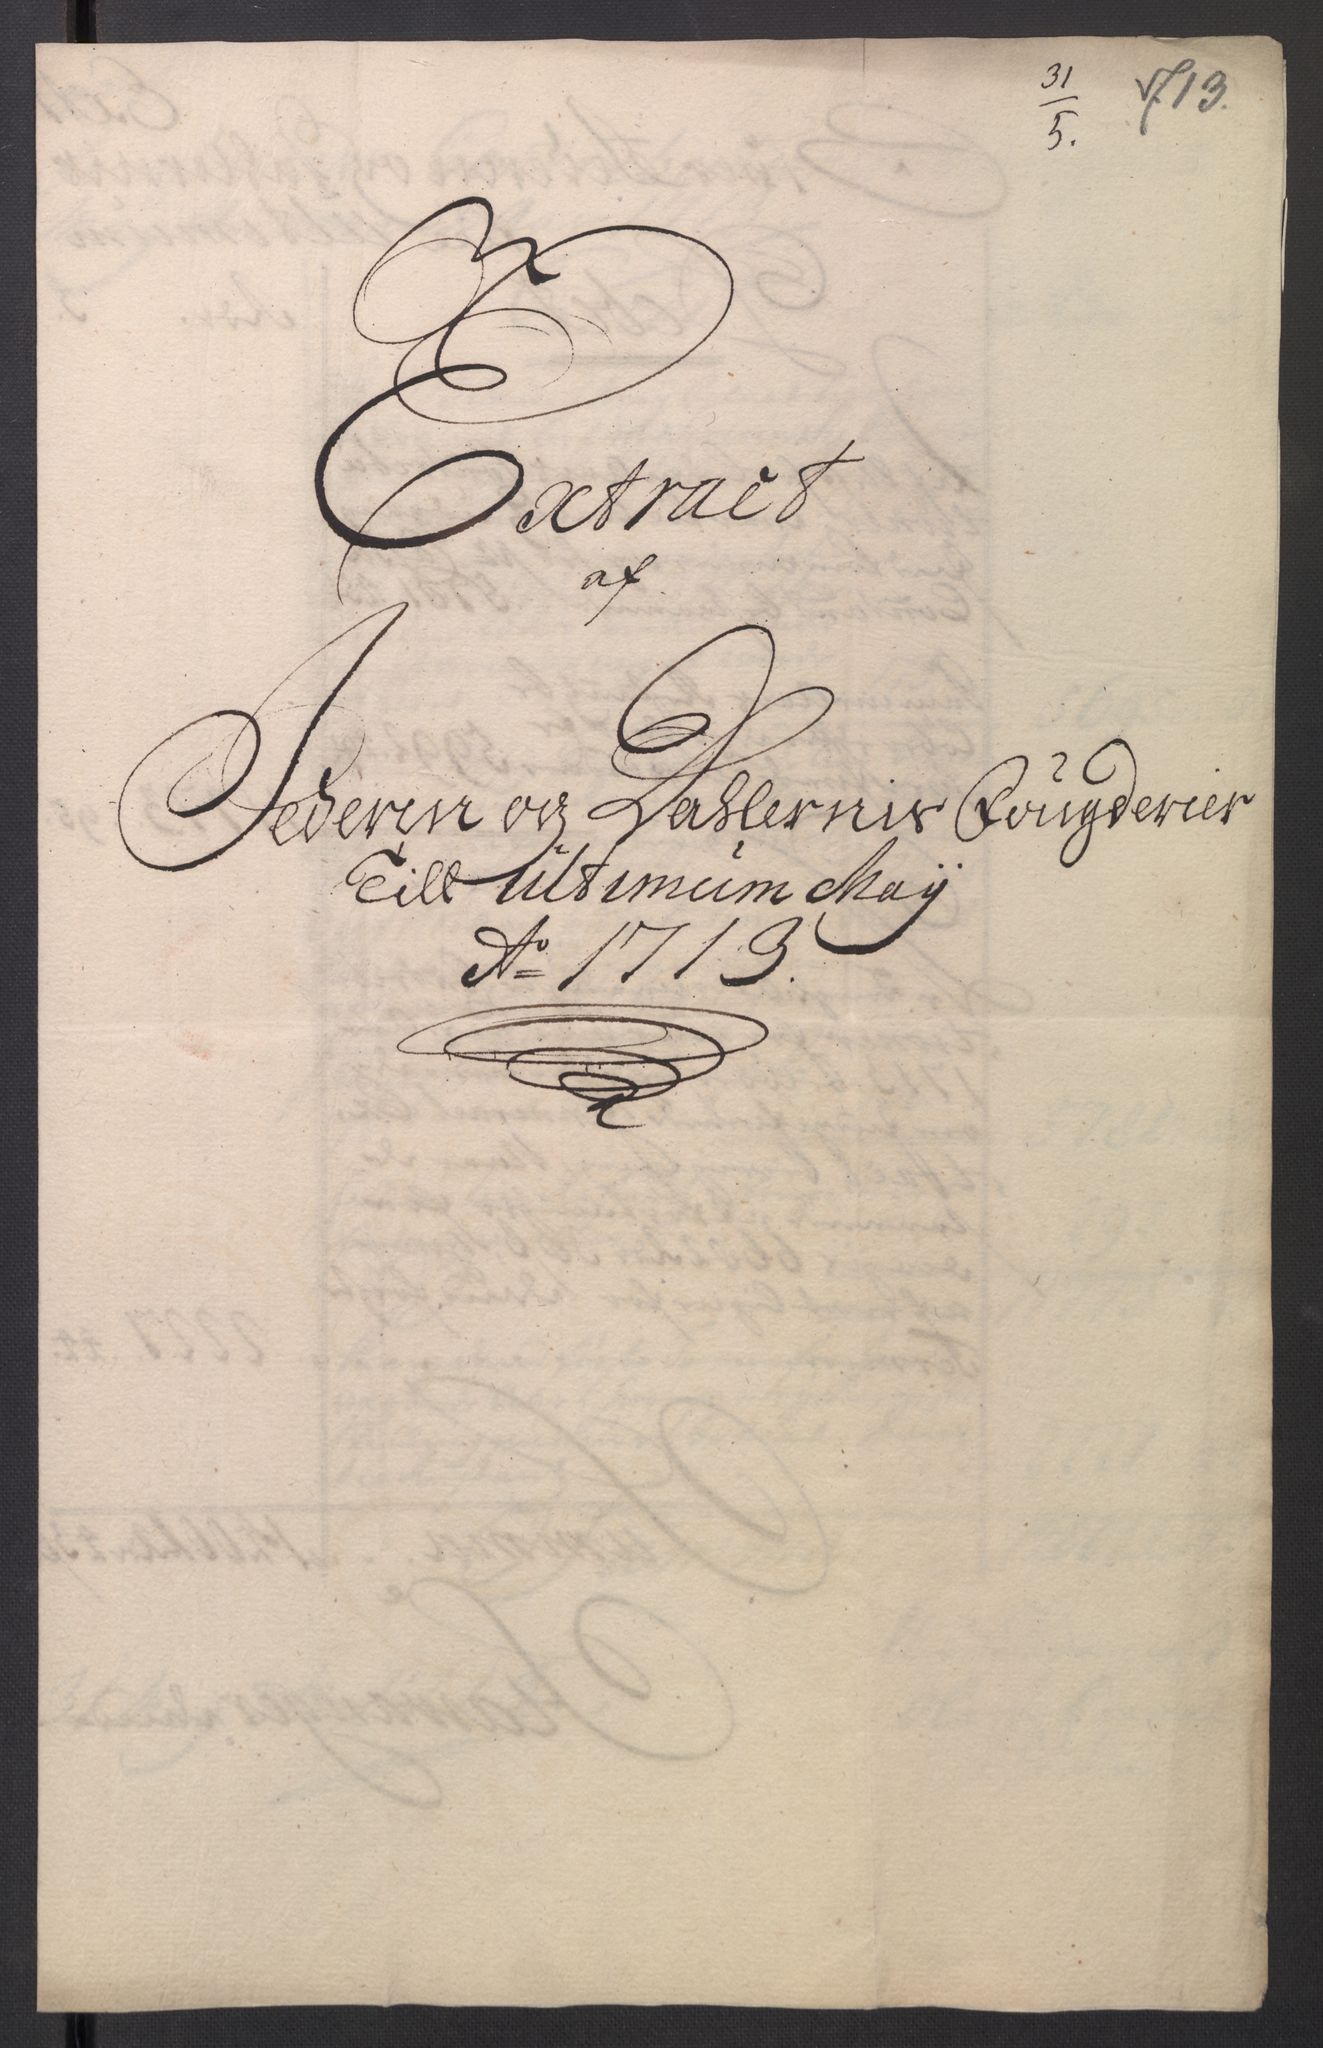 31/5. 713.
Extract
af
Jederen og Dahlernis Fougderier
Till Ultimum Maÿ
Ao 1713.